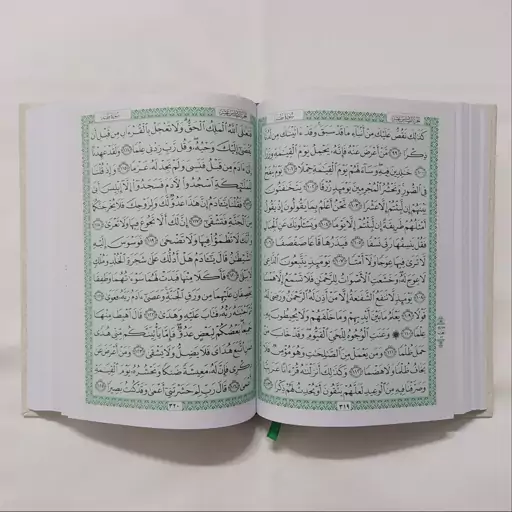 الجزء السادس عشر
سورة طه
كَذَٰلِكَ نَقُصُّ عَلَيْكَ مِنْ أَنۢبَآءِ مَا قَدْ سَبَقَۚ وَقَدْ ءَاتَيْنَٰكَ مِن لَّدُنَّا
ذِكْرًا ٩٩ مَّنْ أَعْرَضَ عَنْهُ فَإِنَّهُۥ يَحْمِلُ يَوْمَ ٱلْقِيَٰمَةِ وِزْرًا
١٠٠ خَٰلِدِينَ فِيهِۖ وَسَآءَ لَهُمْ يَوْمَ ٱلْقِيَٰمَةِ حِمْلًا ١٠١ يَوْمَ يُنفَخُ
فِى ٱلصُّورِۚ وَنَحْشُرُ ٱلْمُجْرِمِينَ يَوْمَئِذٍ زُرْقًا ١٠٢ يَتَخَٰفَتُونَ
بَيْنَهُمْ إِن لَّبِثْتُمْ إِلَّا عَشْرًا ١٠٣ نَّحْنُ أَعْلَمُ بِمَا يَقُولُونَ إِذْ يَقُولُ
أَمْثَلُهُمْ طَرِيقَةً إِن لَّبِثْتُمْ إِلَّا يَوْمًا ١٠٤ وَيَسْـَٔلُونَكَ عَنِ ٱلْجِبَالِ
فَقُلْ يَنسِفُهَا رَبِّى نَسْفًا ١٠٥ فَيَذَرُهَا قَاعًا صَفْصَفًا ١٠٦
لَّا تَرَىٰ فِيهَا عِوَجًا وَلَآ أَمْتًا ١٠٧ يَوْمَئِذٍ يَتَّبِعُونَ ٱلدَّاعِىَ
لَا عِوَجَ لَهُۥۖ وَخَشَعَتِ ٱلْأَصْوَاتُ لِلرَّحْمَٰنِ فَلَا تَسْمَعُ إِلَّا هَمْسًا
١٠٨ يَوْمَئِذٍ لَّا تَنفَعُ ٱلشَّفَٰعَةُ إِلَّا مَنْ أَذِنَ لَهُ ٱلرَّحْمَٰنُ وَرَضِىَ لَهُۥ
قَوْلًا ١٠٩ يَعْلَمُ مَا بَيْنَ أَيْدِيهِمْ وَمَا خَلْفَهُمْ وَلَا يُحِيطُونَ بِهِۦ
عِلْمًا ١١٠ ۞ وَعَنَتِ ٱلْوُجُوهُ لِلْحَىِّ ٱلْقَيُّومِۖ وَقَدْ خَابَ مَنْ
حَمَلَ ظُلْمًا ١١١ وَمَن يَعْمَلْ مِنَ ٱلصَّٰلِحَٰتِ وَهُوَ مُؤْمِنٌ فَلَا
يَخَافُ ظُلْمًا وَلَا هَضْمًا ١١٢ وَكَذَٰلِكَ أَنزَلْنَٰهُ قُرْءَانًا عَرَبِيًّا
وَصَرَّفْنَا فِيهِ مِنَ ٱلْوَعِيدِ لَعَلَّهُمْ يَتَّقُونَ أَوْ يُحْدِثُ لَهُمْ ذِكْرًا ١١٣
٣١٩
الجزء السادس عشر
سورة طه
فَتَعَٰلَى ٱللَّهُ ٱلْمَلِكُ ٱلْحَقُّۗ وَلَا تَعْجَلْ بِٱلْقُرْءَانِ مِن قَبْلِ أَن
يُقْضَىٰٓ إِلَيْكَ وَحْيُهُۥۖ وَقُل رَّبِّ زِدْنِى عِلْمًا ١١٤ وَلَقَدْ عَهِدْنَآ
إِلَىٰٓ ءَادَمَ مِن قَبْلُ فَنَسِىَ وَلَمْ نَجِدْ لَهُۥ عَزْمًا ١١٥ وَإِذْ قُلْنَا
لِلْمَلَٰٓئِكَةِ ٱسْجُدُوا۟ لِءَادَمَ فَسَجَدُوٓا۟ إِلَّآ إِبْلِيسَ أَبَىٰ
١١٦ فَقُلْنَا يَٰٓـَٔادَمُ إِنَّ هَٰذَا عَدُوٌّ لَّكَ وَلِزَوْجِكَ فَلَا يُخْرِجَنَّكُمَا
مِنَ ٱلْجَنَّةِ فَتَشْقَىٰٓ ١١٧ إِنَّ لَكَ أَلَّا تَجُوعَ فِيهَا وَلَا تَعْرَىٰ
١١٨ وَأَنَّكَ لَا تَظْمَؤُا۟ فِيهَا وَلَا تَضْحَىٰ ١١٩ فَوَسْوَسَ إِلَيْهِ
ٱلشَّيْطَٰنُ قَالَ يَٰٓـَٔادَمُ هَلْ أَدُلُّكَ عَلَىٰ شَجَرَةِ ٱلْخُلْدِ وَمُلْكٍ
لَّا يَبْلَىٰ ١٢٠ فَأَكَلَا مِنْهَا فَبَدَتْ لَهُمَا سَوْءَٰتُهُمَا وَطَفِقَا
يَخْصِفَانِ عَلَيْهِمَا مِن وَرَقِ ٱلْجَنَّةِۚ وَعَصَىٰٓ ءَادَمُ رَبَّهُۥ فَغَوَىٰ
١٢١ ثُمَّ ٱجْتَبَٰهُ رَبُّهُۥ فَتَابَ عَلَيْهِ وَهَدَىٰ ١٢٢ قَالَ ٱهْبِطَا مِنْهَا
جَمِيعًۢاۖ بَعْضُكُمْ لِبَعْضٍ عَدُوٌّۖ فَإِمَّا يَأْتِيَنَّكُم مِّنِّى هُدًى
فَمَنِ ٱتَّبَعَ هُدَاىَ فَلَا يَضِلُّ وَلَا يَشْقَىٰ ١٢٣ وَمَنْ أَعْرَضَ عَن
ذِكْرِى فَإِنَّ لَهُۥ مَعِيشَةً ضَنكًا وَنَحْشُرُهُۥ يَوْمَ ٱلْقِيَٰمَةِ
أَعْمَىٰ ١٢٤ قَالَ رَبِّ لِمَ حَشَرْتَنِىٓ أَعْمَىٰ وَقَدْ كُنتُ بَصِيرًا ١٢٥
٣٢٠